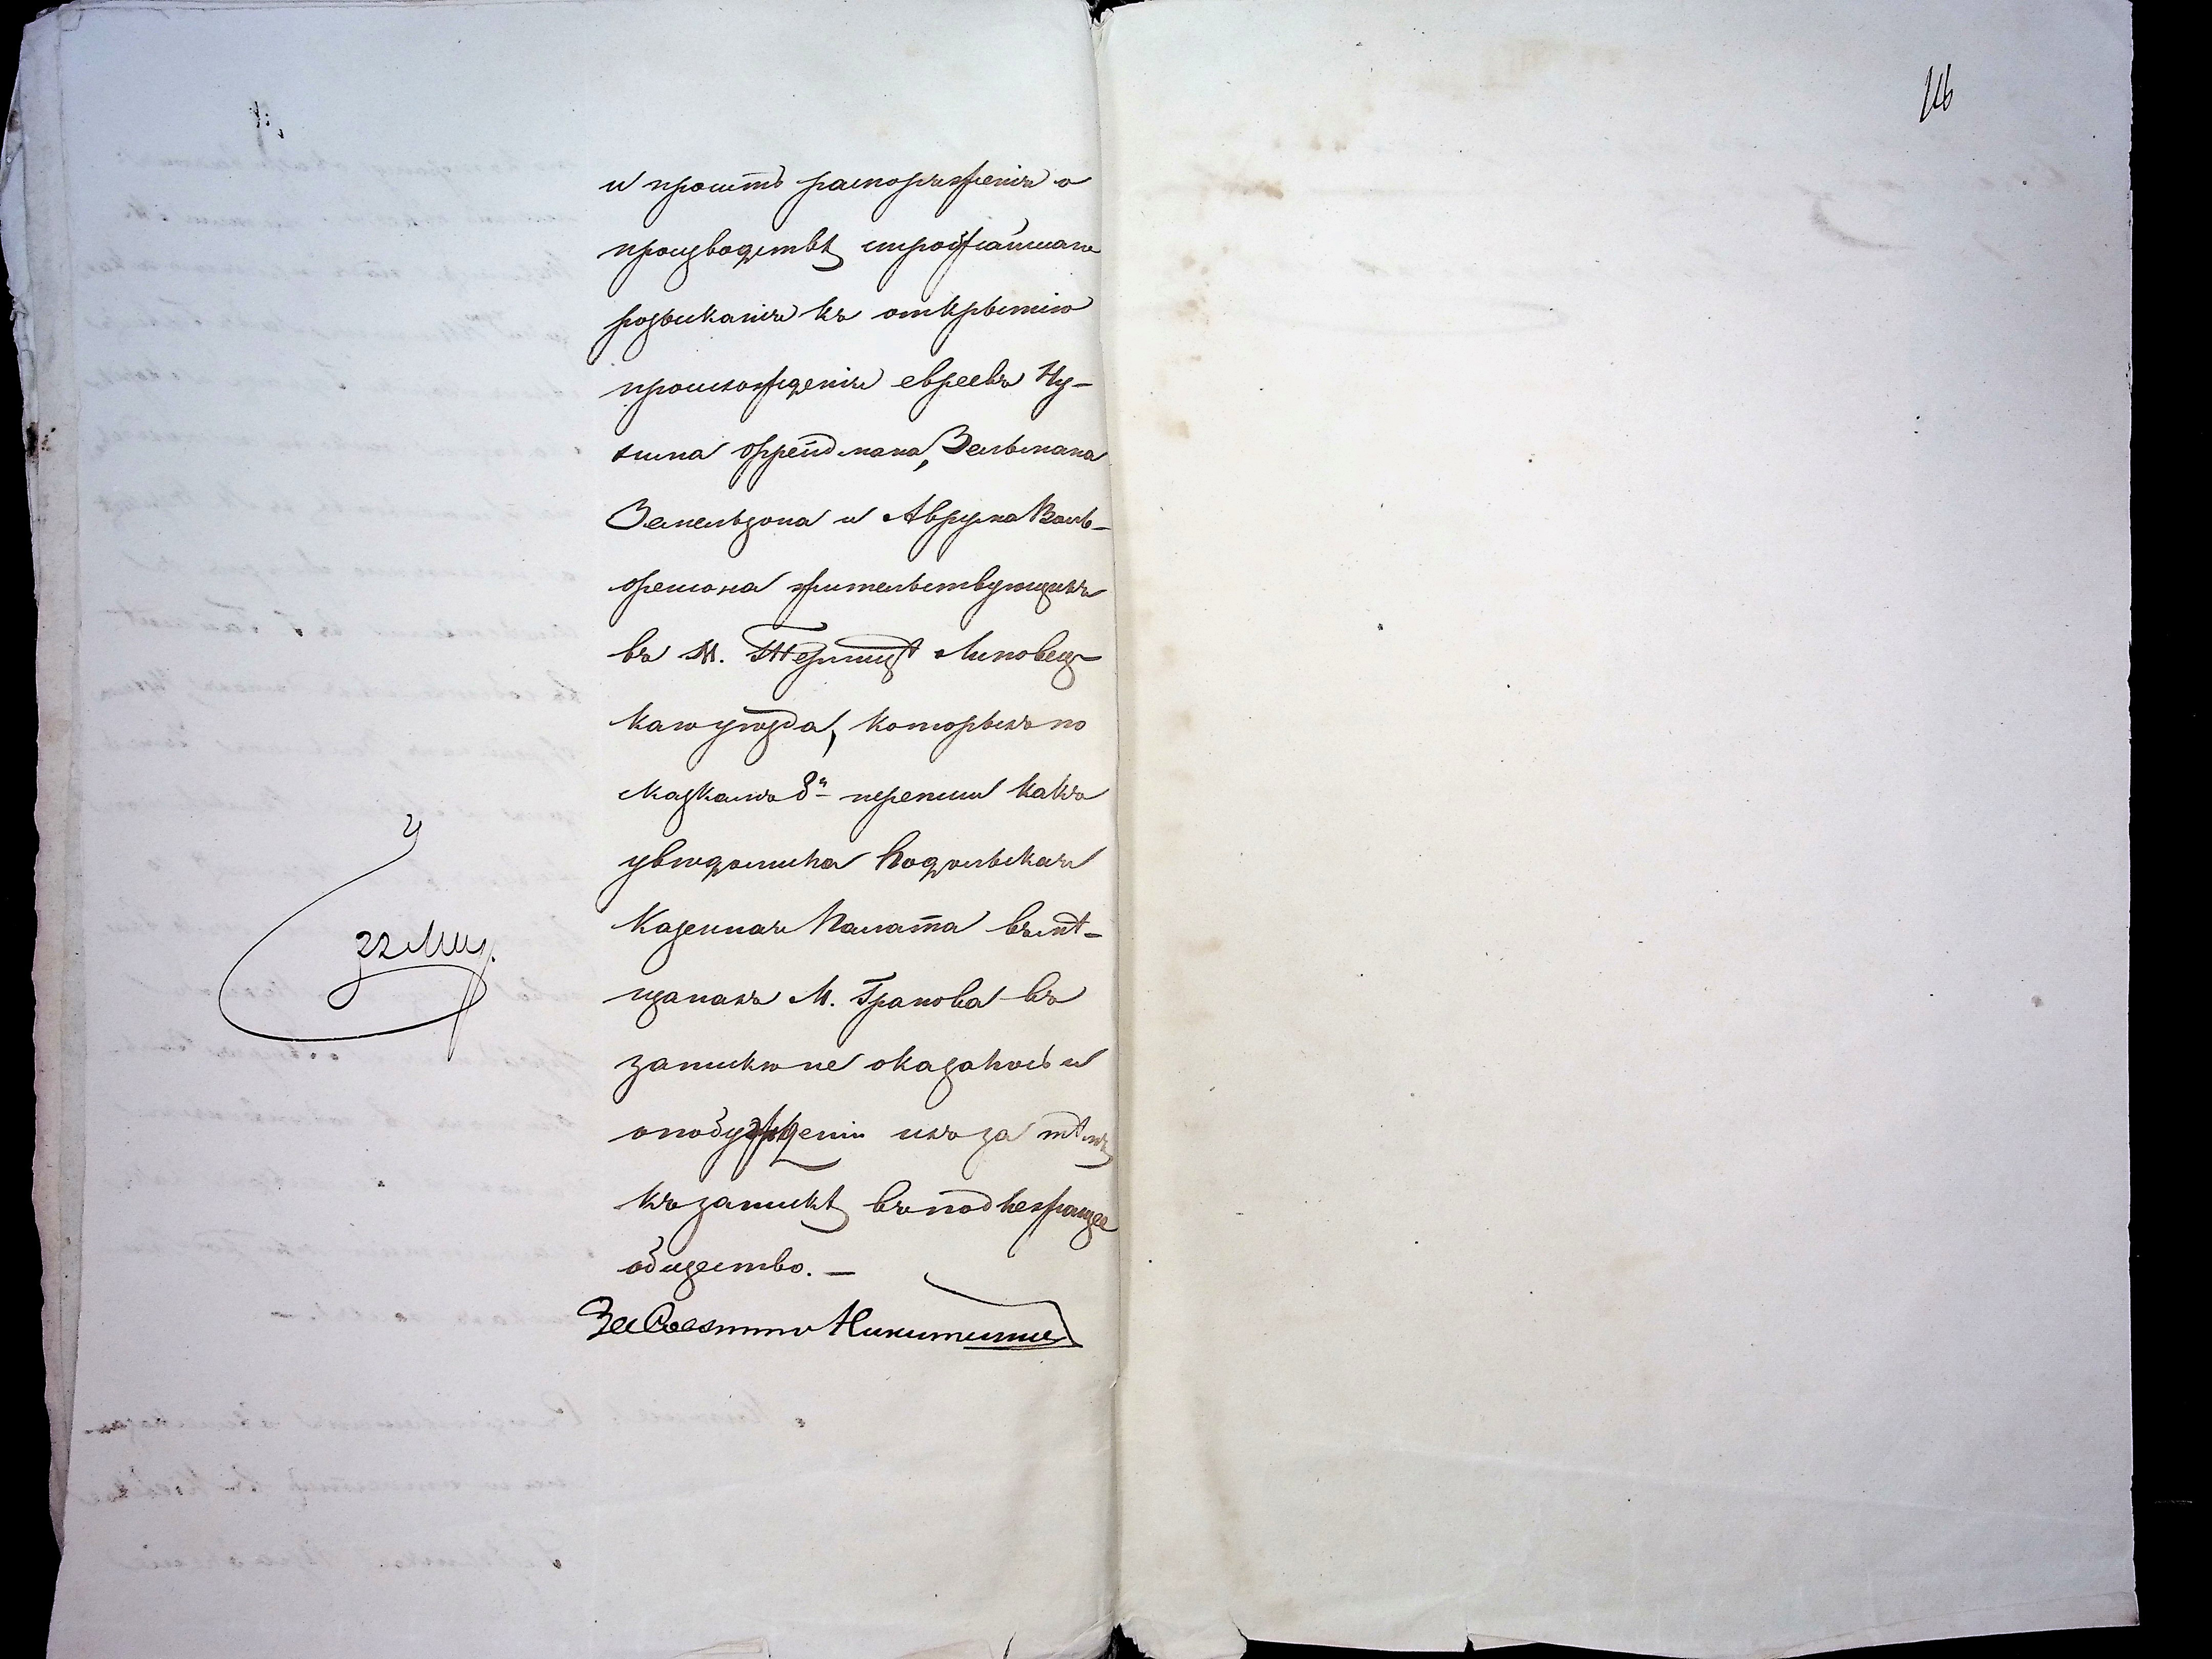 и проситъ распоряженія о
производствѣ строжайшаго
розысканія къ открытію
происхожденія евреевъ Ну-
хима Фрейдмана, Зельмана
Замельзона и Аврума Валь-
фензона жительствующихъ
въ М. Терлицѣ Липовец-
каго уѣзда, которыхъ по
сказкамъ 8й переписи какъ
увѣдомила Подольская
Казенная Палата въ мѣ-
щанахъ М. Гранова въ
запискѣ не оказалось и
о побужденіи ихъ за тѣмъ
къ запискѣ въ подлежащее
общество. —
За Совѣтн Никитинъ
116